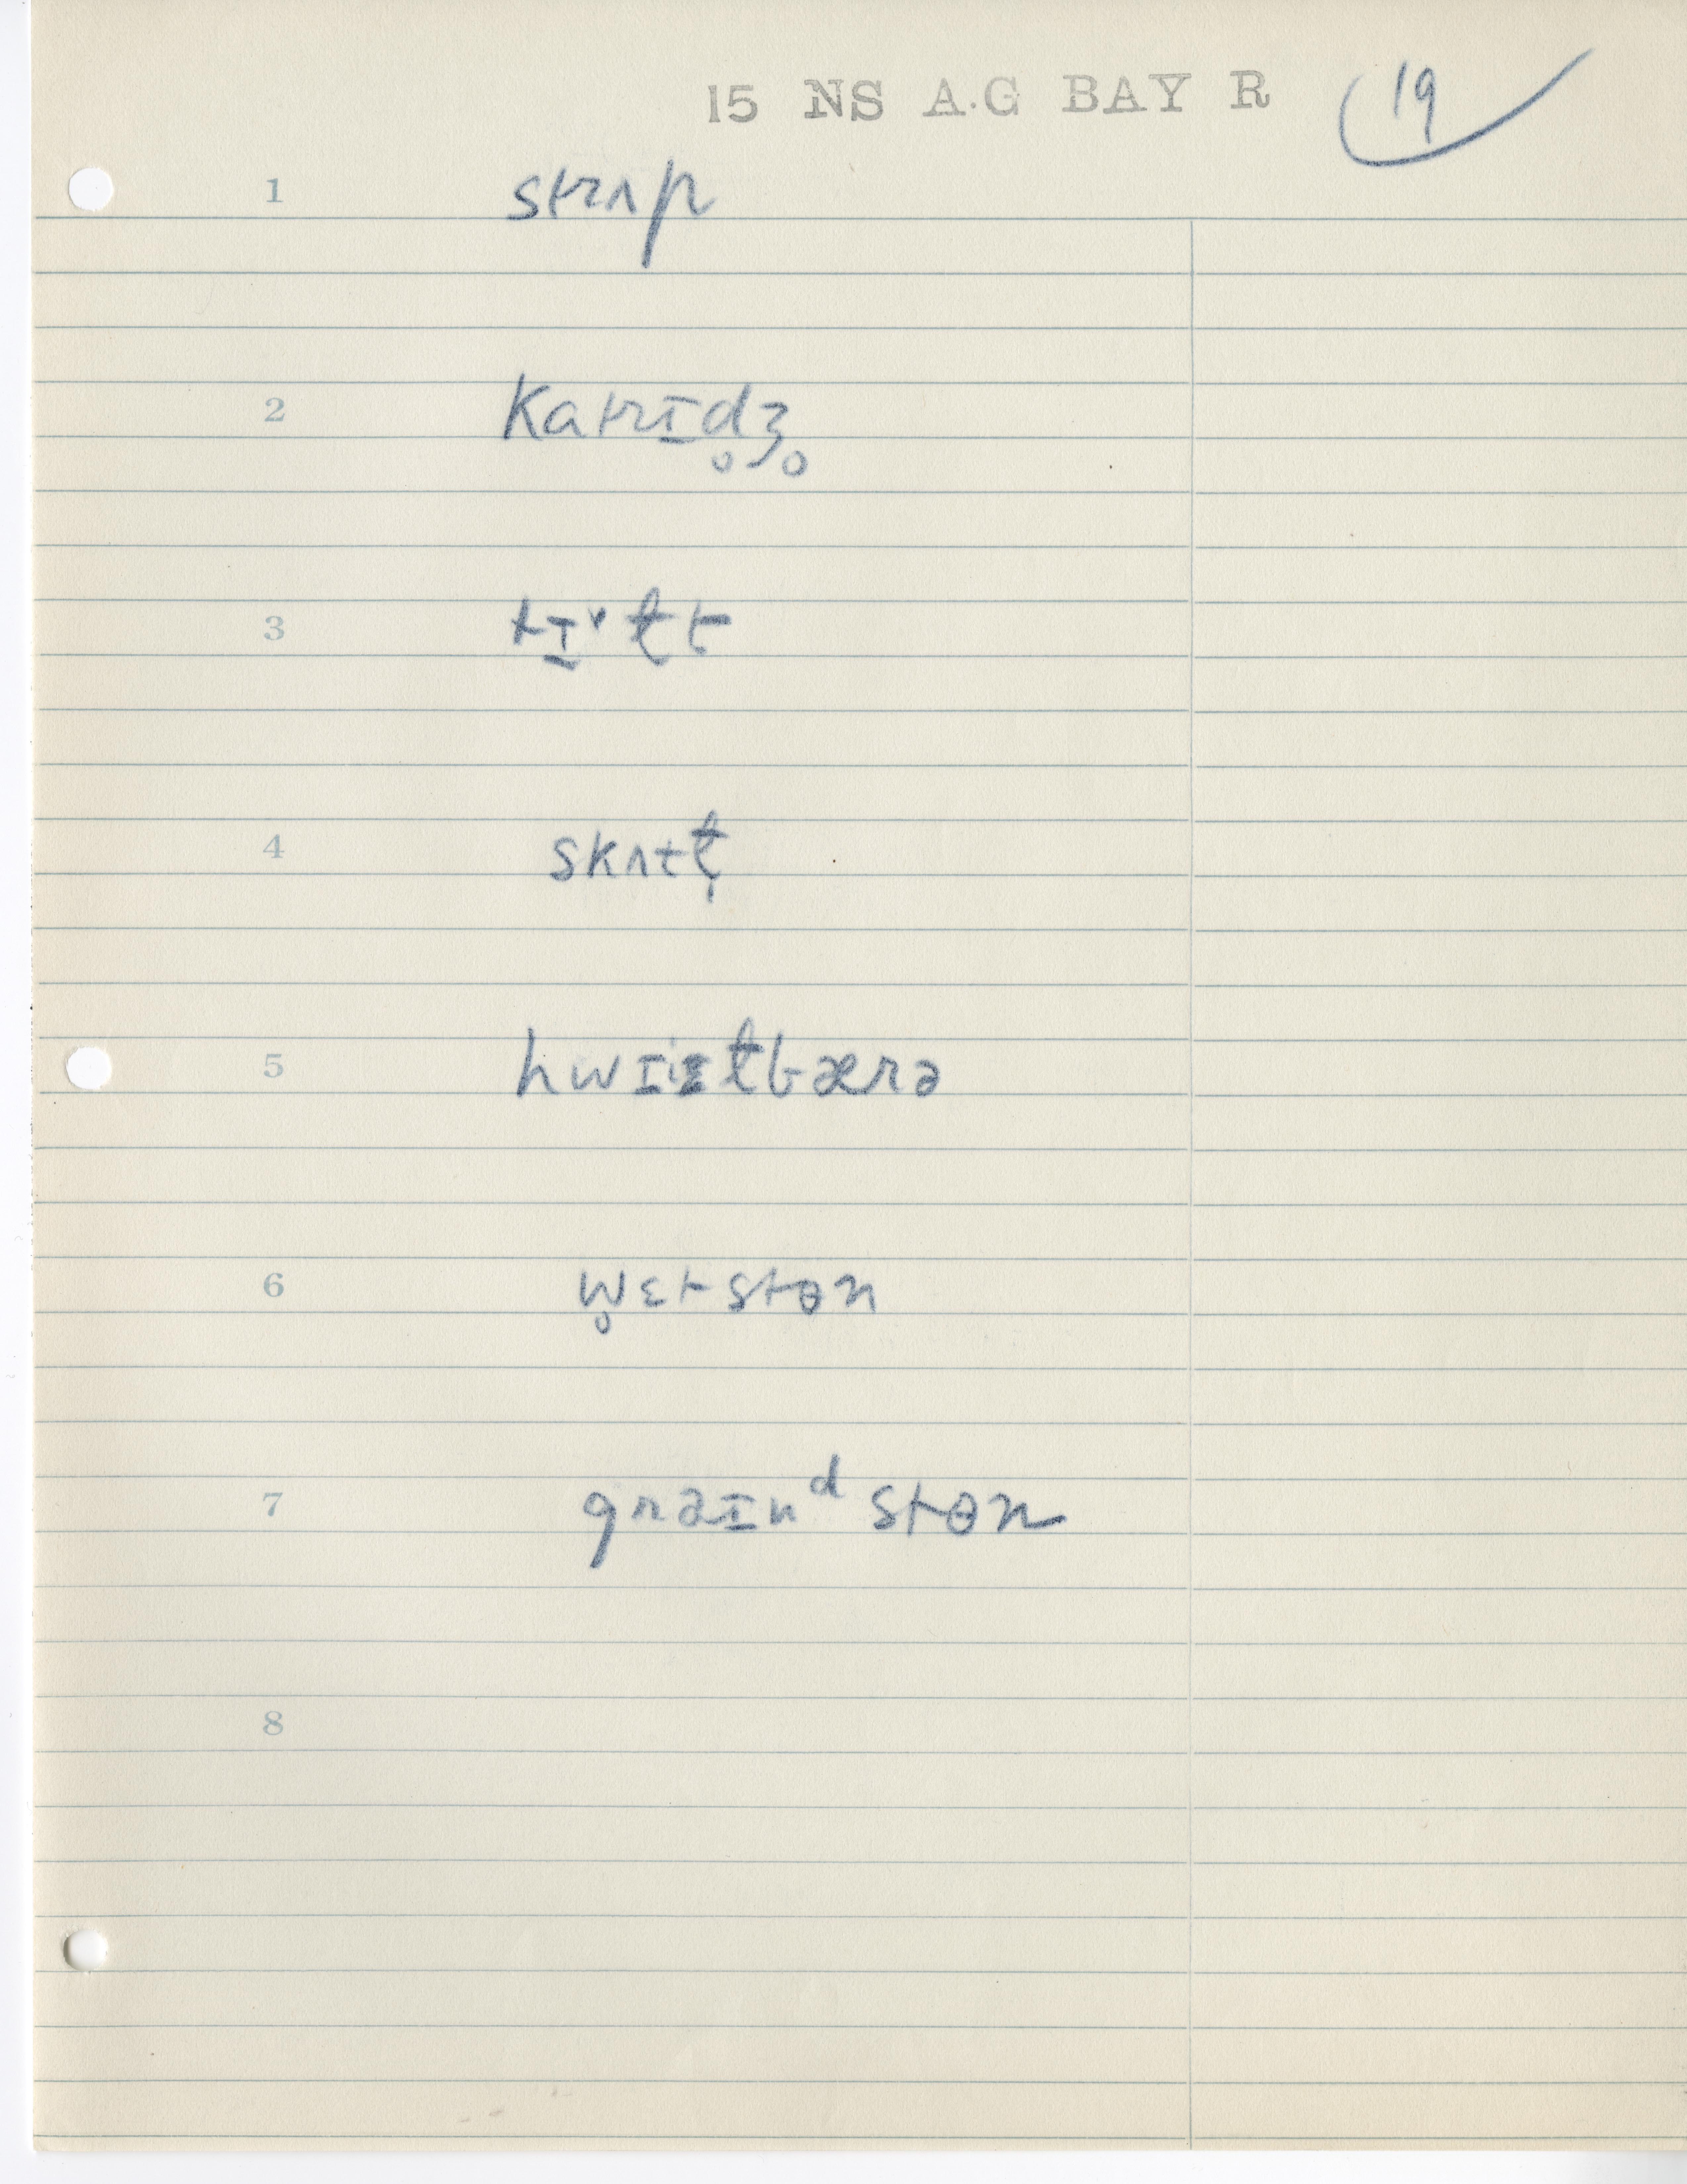 15 NS A.G BAY R 19
1 strʌp
2 katrɪd̥ʒ̥
3 tɪ̠˅ɫt
4 skʌtɫ̩
5 hwɪiɫbærə
6 w̥ɛtstɵn
7 graɪnᵈstɵn
8